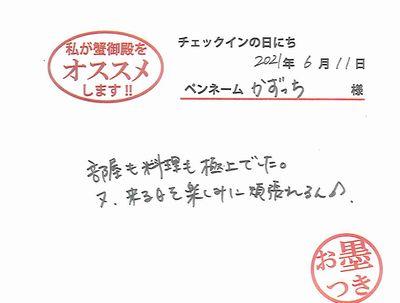 私が蟹御殿を
オススメ
します!!
チェックインの日にち
2021年 6月 11日
ペンネーム かずっち 様
部屋も料理も極上でした。
又、来る日を楽しみに頑張れるん♪.
お墨
つき